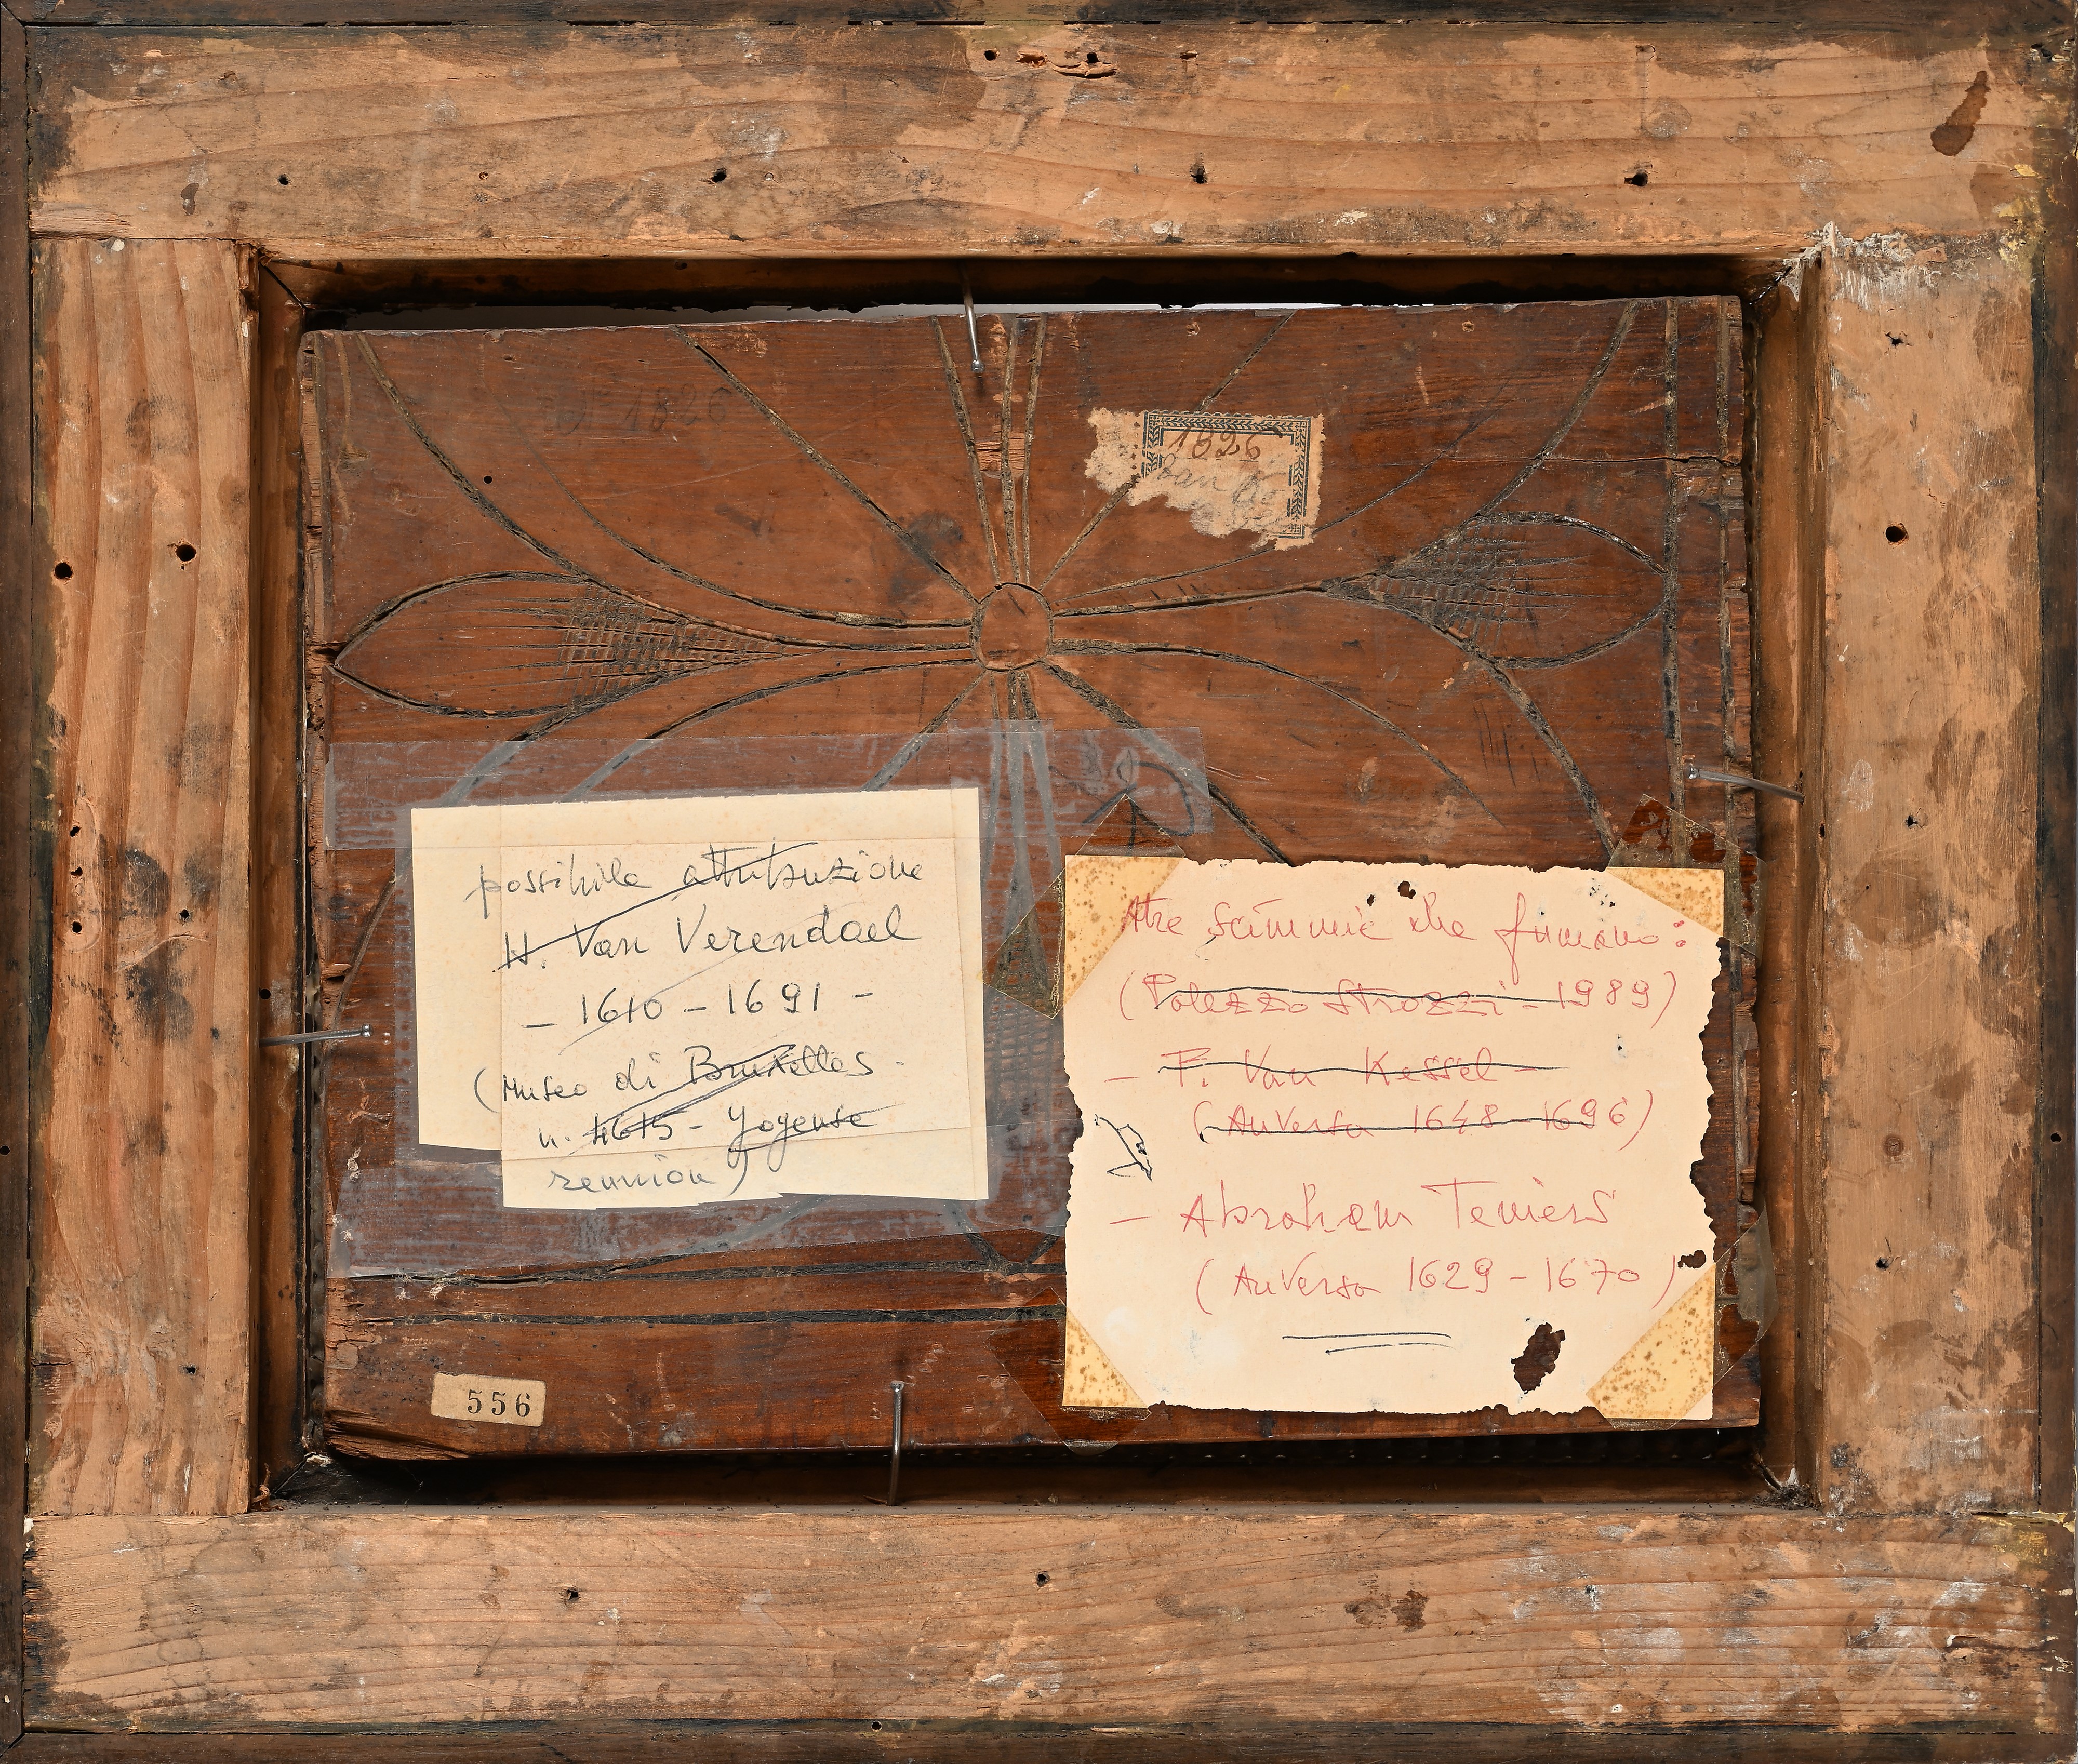 N 1826
1826
possibile attribuzione
H. Van Verendael
- 1610 - 1691 -
(Museo di Bruxelles -
n. 4615 - Yogense
reunion)
Tre scimmie che fumano:
(Palazzo Strozzi - 1989)
- F. Van Kessel -
(Anversa 1648 - 1696)
- Abraham Teniers
(Anversa 1629 - 1670)
556